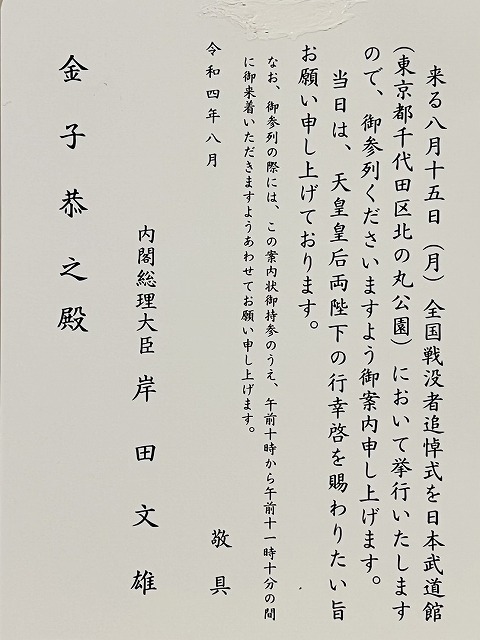 来る八月十五日（月）全国戦没者追悼式を日本武道館
（東京都千代田区北の丸公園）において挙行いたします
ので、御参列くださいますよう御案内申し上げます。
当日は、天皇皇后両陛下の行幸啓を賜わりたい旨
お願い申し上げております。
なお、御参列の際には、この案内状御持参のうえ、午前十時から午前十一時十分の間
に御来着いただきますようあわせてお願い申し上げます。
敬具
令和四年八月
内閣総理大臣 岸田文雄
金子恭之殿